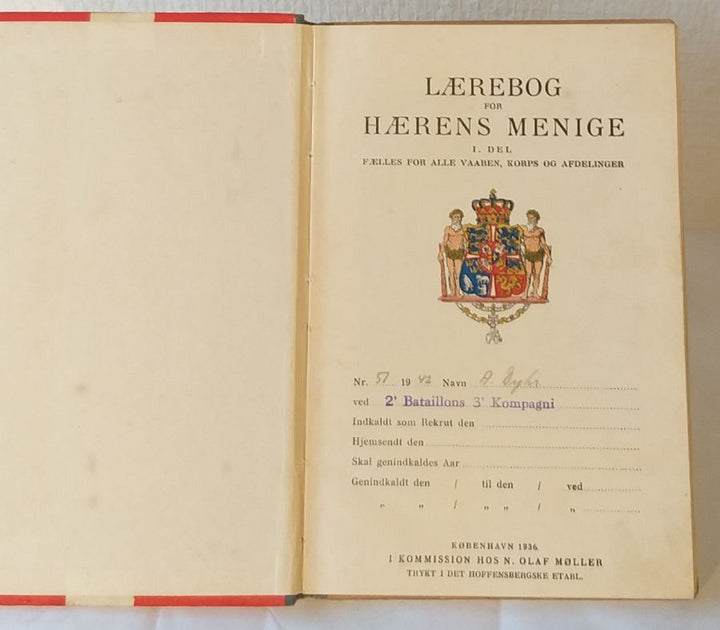 LÆREBOG
FOR
HÆRENS MENIGE
I. DEL
FÆLLES FOR ALLE VAABEN, KORPS OG AFDELINGER
Nr. 51 19 43 Navn A.
ved 2' Bataillons 3' Kompagni
Indkaldt som Rekrut den
Hjemsendt den
Skal genindkaldes Aar
Genindkaldt den / til den / ved
„ „ / „ „ / „
KØBENHAVN 1936.
I KOMMISSION HOS N. OLAF MØLLER
TRYKT I DET HOFFENSBERGSKE ETABL.